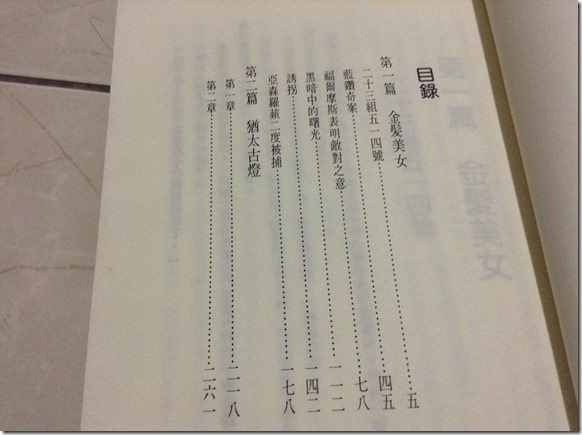 目錄
第一篇 金髮美女
二十三組五一四號……………五
藍鑽奇案……………四五
福爾摩斯表明敵對之意……………七八
黑暗中的曙光……………一一二
誘拐……………一四二
亞森羅蘋二度被捕……………一七八
第二篇 猶太古燈
第一章……………二一八
第二章……………二六一